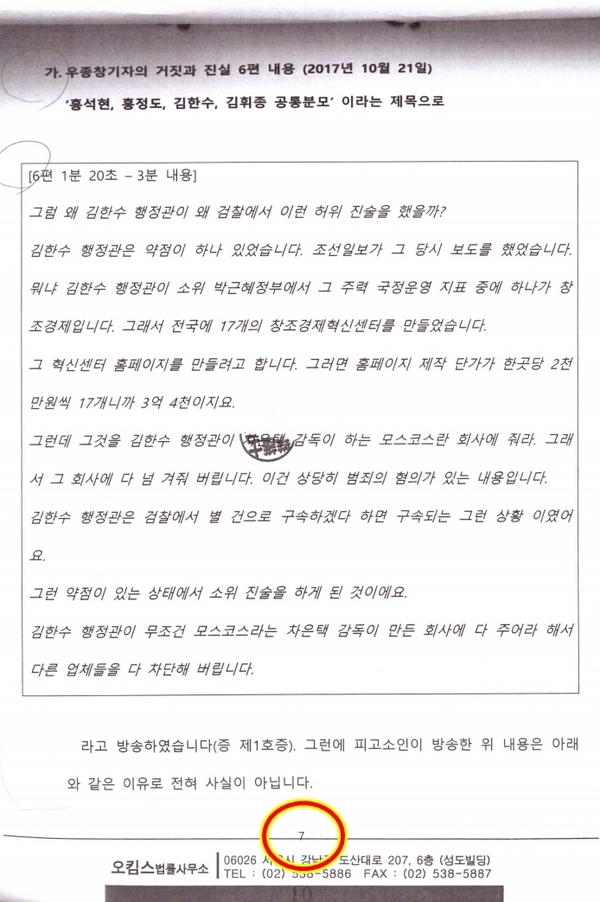 가. 우종창기자의 거짓과 진실 6편 내용 (2017년 10월 21일)
'홍석현, 홍정도, 김한수, 김휘종 공통분모' 이라는 제목으로
[6편 1분 20초 – 3분 내용]
그럼 왜 김한수 행정관이 왜 검찰에서 이런 허위 진술을 했을까?
김한수 행정관은 약점이 하나 있었습니다. 조선일보가 그 당시 보도를 했었습니다.
뭐냐 김한수 행정관이 소위 박근혜정부에서 그 주력 국정운영 지표 중에 하나가 창
조경제입니다. 그래서 전국에 17개의 창조경제혁신센터를 만들었습니다.
그 혁신센터 홈페이지를 만들려고 합니다. 그러면 홈페이지 제작 단가가 한곳당 2천
만원씩 17개니까 3억 4천이지요.
그런데 그것을 김한수 행정관이 감독이 하는 모스코스란 회사에 줘라. 그래
서 그 회사에 다 넘 겨줘 버립니다. 이건 상당히 범죄의 혐의가 있는 내용입니다.
김한수 행정관은 검찰에서 별 건으로 구속하겠다 하면 구속되는 그런 상황 이였어
요.
그런 약점이 있는 상태에서 소위 진술을 하게 된 것이에요.
김한수 행정관이 무조건 모스코스라는 차은택 감독이 만든 회사에 다 주어라 해서
다른 업체들을 다 차단해 버립니다.
라고 방송하였습니다(증 제1호증). 그런에 피고소인이 방송한 위 내용은 아래
와 같은 이유로 전혀 사실이 아닙니다.
7
오킴스법률사무소
06026 서울시 강남구 도산대로 207, 6층 (성도빌딩)
TEL : (02) 538-5886 FAX : (02) 538-5887
10